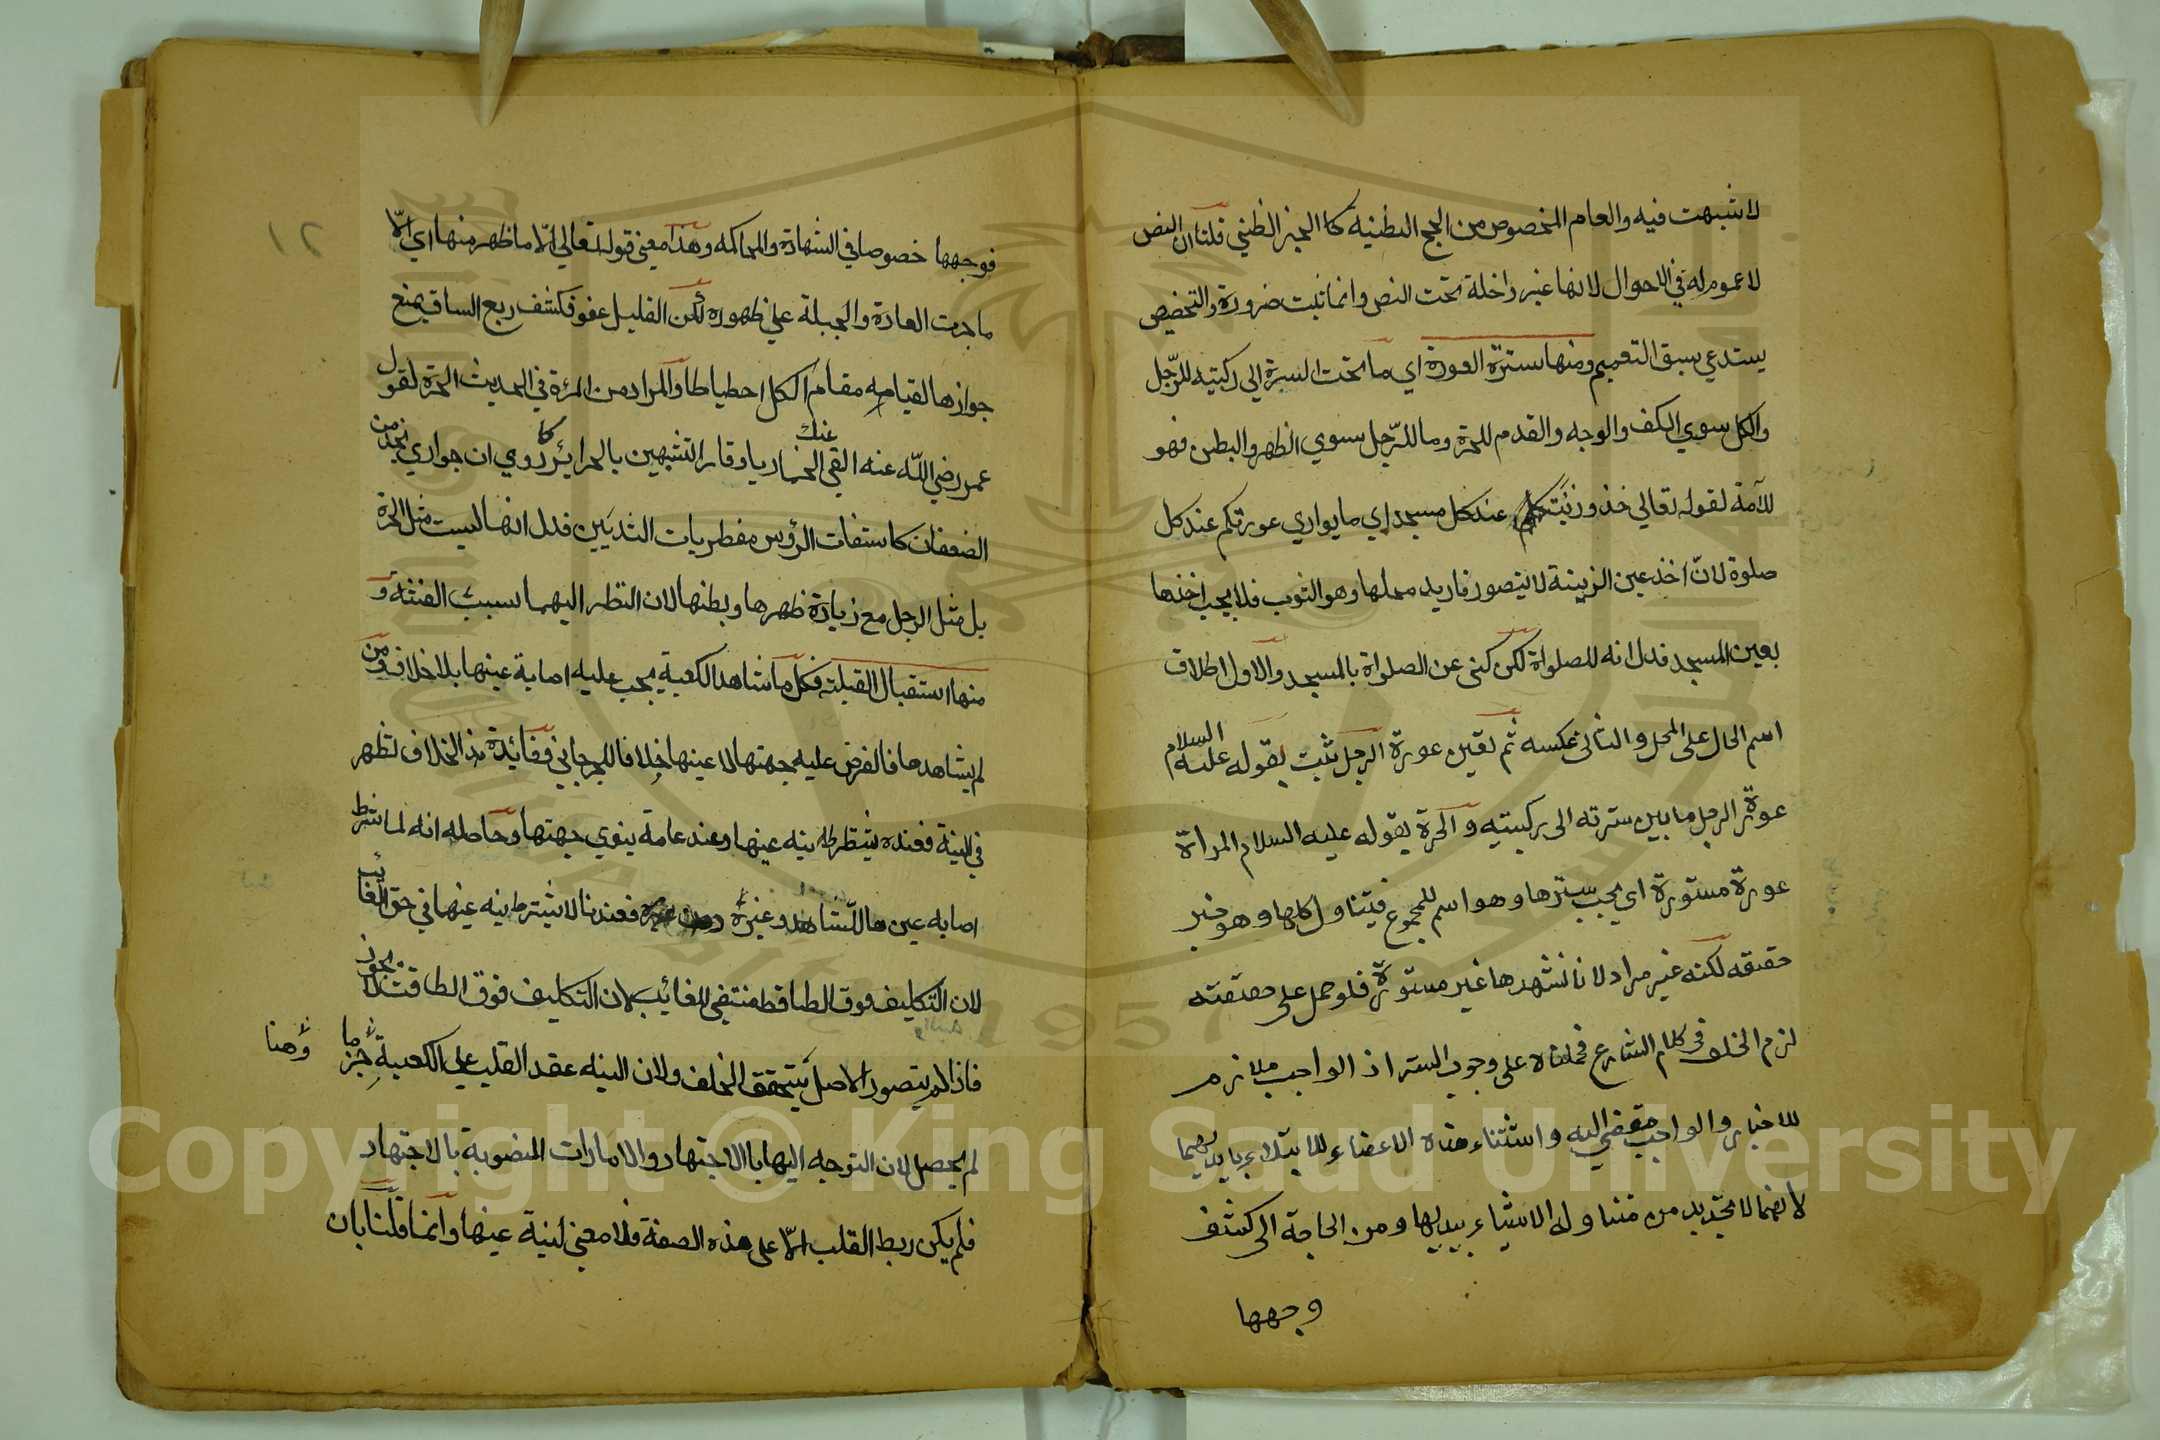 لا شبهت فيه والعام المخصوص من الحجج الظنية كالخبر الظني قلنا ان النص
لا عموم له في الاحوال لانها غير داخلة تحت النص وانما ثبت ضرورة والتخصيص
يستدعي سبق التعميم ومنها سترة العورة اي ما تحت السرة الى ركبتيه للرّجل
والكل سوي الكف والوجه والقدم للحرة وما للرّجل سوي الظهر والبطن فهو
للآمة لقوله تعالي خذوا زينتكم عند كل مسجد اي ما يواري عورتكم عند كل
صلوة لانّ اخذ عين الزينة لا يتصور فاريد محلها وهو الثوب فلا يجب اخذها
بعين المسجد فدل انه للصلواة لكن كنى عن الصلواة بالمسجد والاول اطلاق
اسم الحال على المحل والثاني عكسه ثم تعين عورة الرجل ثبت بقوله عليه السلام
عورة الرجل ما بين سترته الى ركبتيه والحرة بقوله عليه السلام المراة
عورة مستورة اي يجب سترها وهو اسم للمجموع فيتناول كلها وهو خبر
حقيقه لكنه غير مراد لانا نشهدها غير مستورة فلو حمل على حقيقته
لزم الخلف في كلام الشارع فحملناه على وجوب الستر اذ الواجب ملازم
للاخبار والواجب مقضي اليه واستثناء هذه الاعضاء للابتلاء بابديهما
لانهما لا تجد بد من مناولة الاشياء بيديها ومن الحاجة الى كشف
وجهها
٢١
فوجهها خصوصا في الشهادة والمحاكمه وهذا معنى قوله تعالي الّا ما ظهر منها اي الّا
ما جرت العادة والجبلة علي ظهوره لكن القليل عفو فكشف ربع الساق يمنع
جوازها لقيامه مقام الكل احطياطا والمراد من المرئة في الحديث الحرة لقول
عمر رضي اللّه عنه القي عنك الخمار يا دفار اتتشبهين بالحرائر كما روي ان جواري نجد من
الضعفان كاشفات الرؤس مضطربات الثديين فدل انها ليست مثل الحرة
بل مثل الرجل مع زيادة ظهرها وبطنها لان النظر اليهما سبب الفتنة و
منها استقبال القبلة فكل ما شاهد الكعبة يجب عليه اصابة عينها بلا خلاف ومن
لم يشاهدها فالفرض عليه جهتها لا عينها خلافا للجرجاني ففائدة هذا الخلاف تظهر
في النية فعنده يشترط نيه عينها وعند عامة ينوي جهتها وحاصله انه لما شرط
اصابه عينها للشاهد وغيره فعندنا لا يشترط نيه عينها في حق الغائب
لان التكليف فوق الطاقة منتفي للغائب لان التكليف فوق الطاقت لا يجوز
فاذا لم يتصور الاصل يتحقق الخلف ولان النيه عقد القلب علي الكعبة جزما وهنا
لم يحصل لان التوجه اليها بالاجتهاد والامارات المنصوبة بالاجتهاد
فلم يكن ربط القلب الّا على هذه الصفة فلا معنى لنية عينها وانما قلنا بان
Copyright © King Saud University
1957